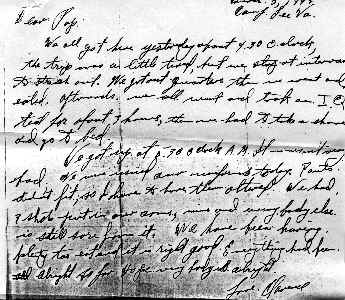 Camp Lee Va.
Dear Pop:
We all got here yesterday about 4:30 O clock,
the trip was a little tired, but we stop at
to out. We got our quarters then we went and
eated. Afterwards we all went and took an I Q
test for about 3 hours, then we had to take a shower
and go to bed.
We got up at 5:30 O clock A.M. It wasn't very
bad. We received our uniforms today. Pants
didn't fit, so I have to have them altered. We had
3 shots put in our arms, mine and every body else
is still sore from it. We have been having
plenty to eat and it is right good. Everything has been
alright so far. Hope everybody is alright.